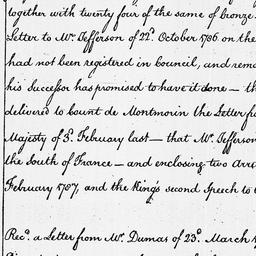 together with twenty four of the same of bronze
Letter to Mr. Jefferson of 22d. October 1786 on the
had not been registered in Council, and rem
his successor has promised to have it done — th
delivered to Count de Montmorin the Letter fr
Majesty of 3. February last — that Mr. Jefferson
the South of France — and enclosing two Arr
February 1787, and the King's second Speech to
Recd. a Letter from Mr. Dumas of 23d. March